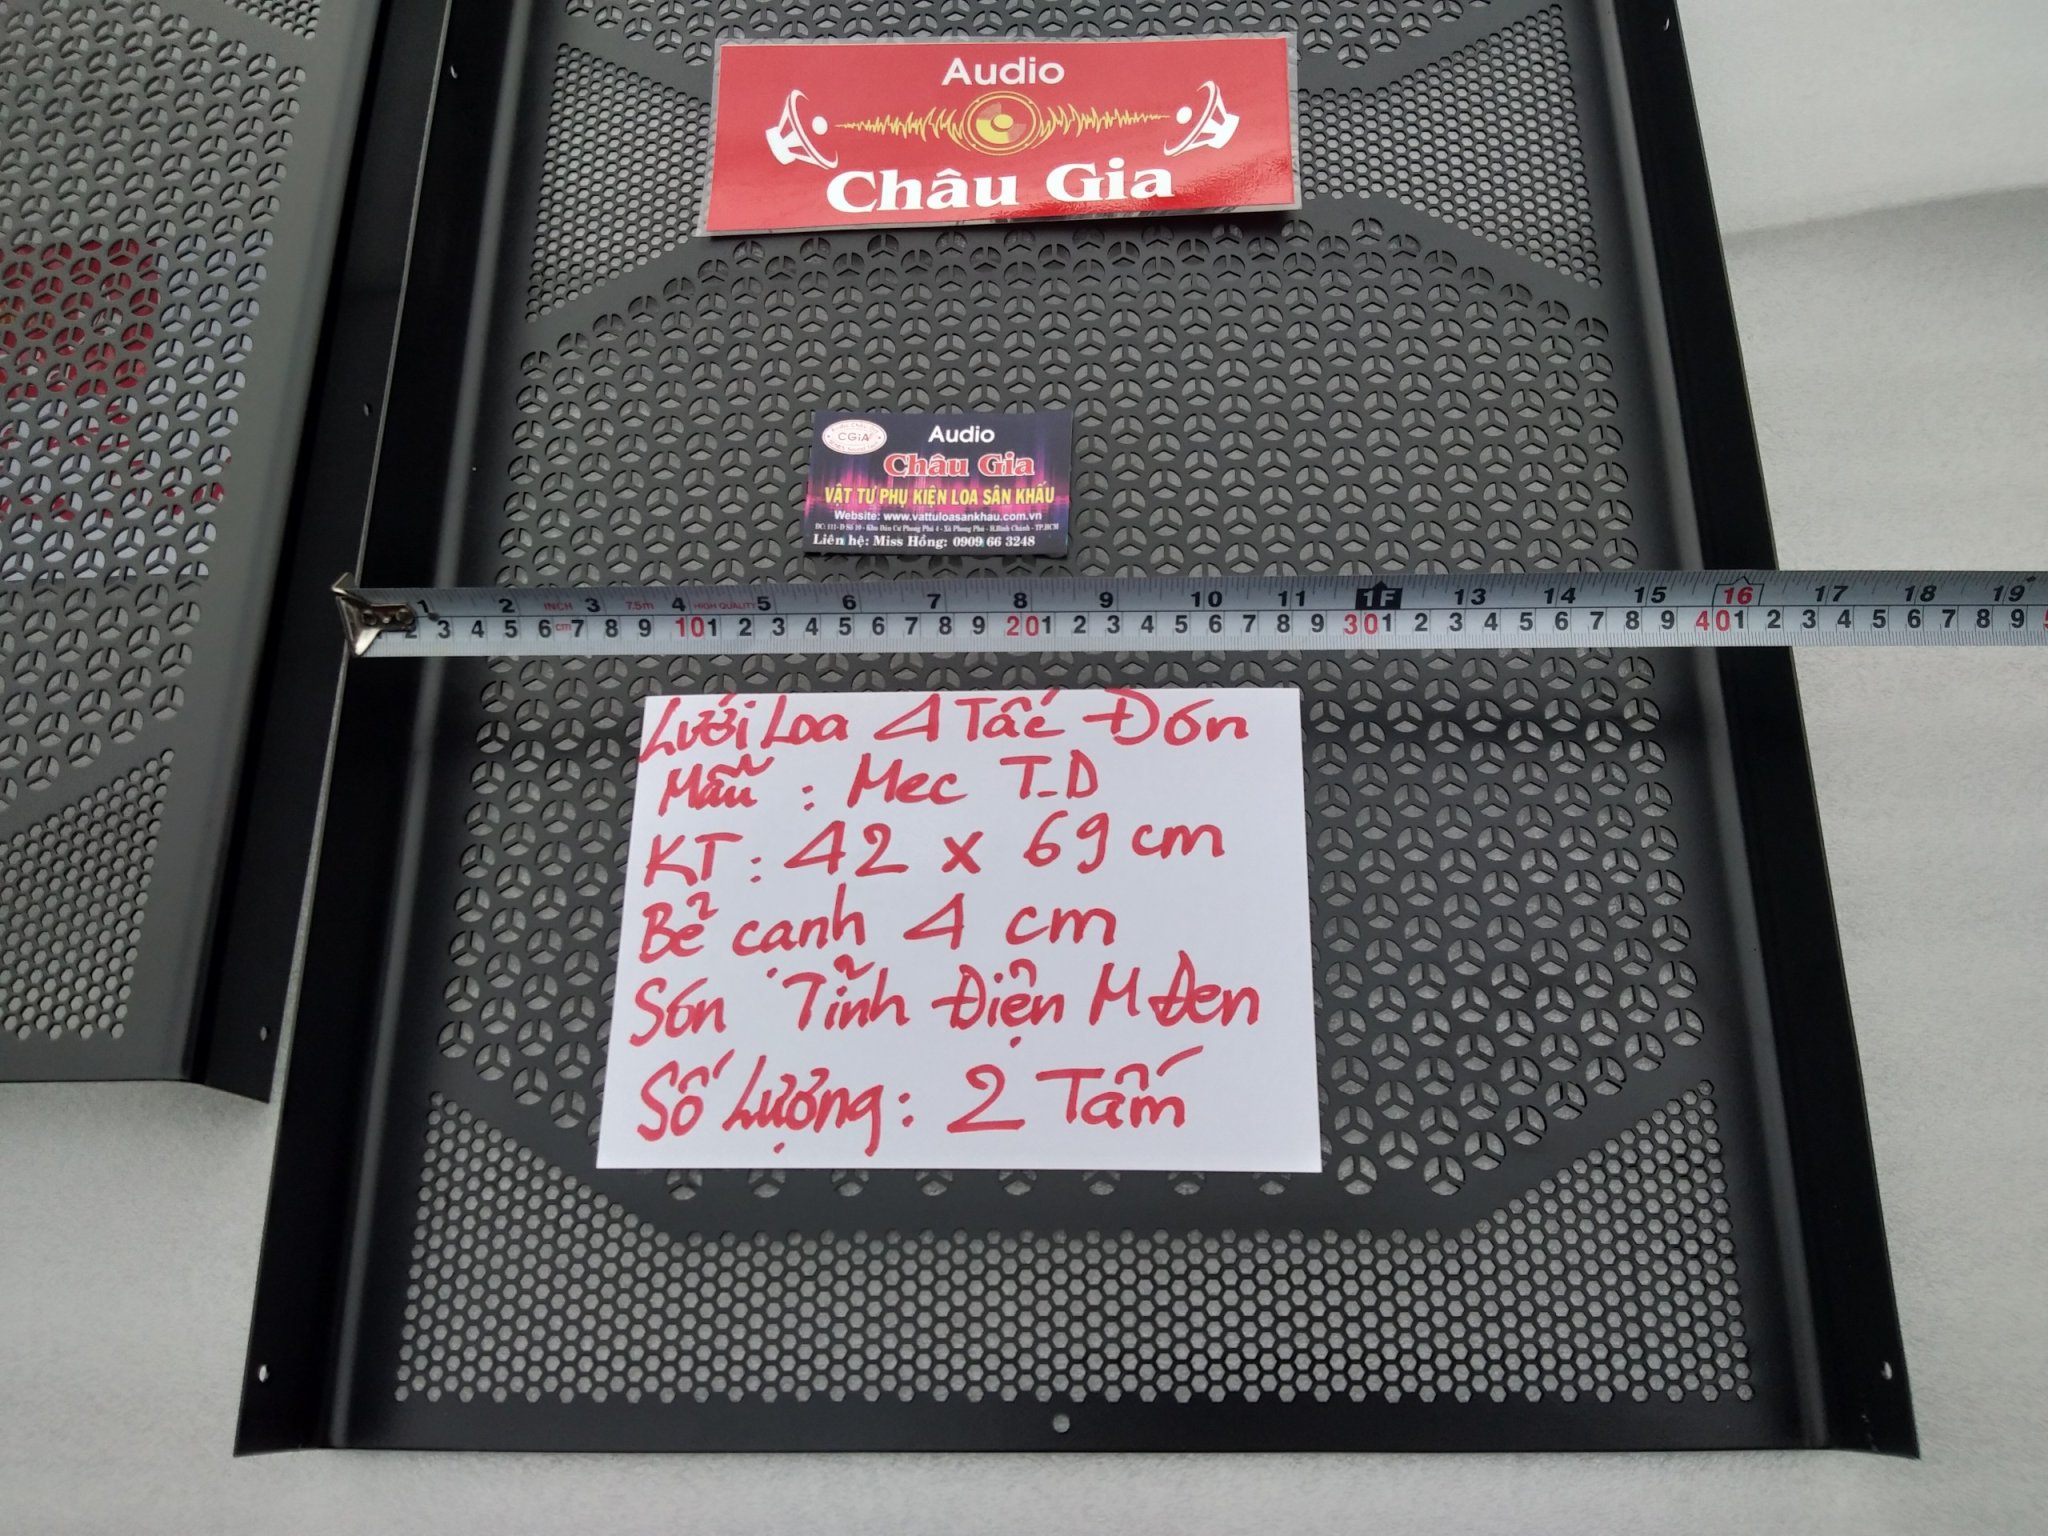 Audio
Châu Gia
CGiA
Audio
Châu Gia
VẬT TƯ PHỤ KIỆN LOA SÂN KHẤU
Website: www.vattuloasankhau.com.vn
ĐC: 111-D Số 10 - Khu Dân Cư Phong Phú 4 - Xã Phong Phú - H.Bình Chánh - TP.HCM
Liên hệ: Miss Hồng: 0909 66 3248
1 2 INCH 3 7.5m 4 HIGH QUALITY 5 6 7 8 9 10 11 1F 13 14 15 16 17 18 19
2 3 4 5 6 cm 7 8 9 10 1 2 3 4 5 6 7 8 9 20 1 2 3 4 5 6 7 8 9 30 1 2 3 4 5 6 7 8 9 40 1 2 3 4 5 6 7 8 9
Lưới Loa 4 Tấc Đơn
Mẫu : Mec T-D
KT : 42 x 69 cm
Bẻ cạnh 4 cm
Sơn Tĩnh Điện M Đen
Số Lượng : 2 Tấm